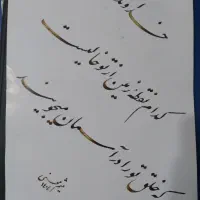 خداوندا
کدام نقطه زمین از تو خالیست
که خلق تو را در آسمان میجویند